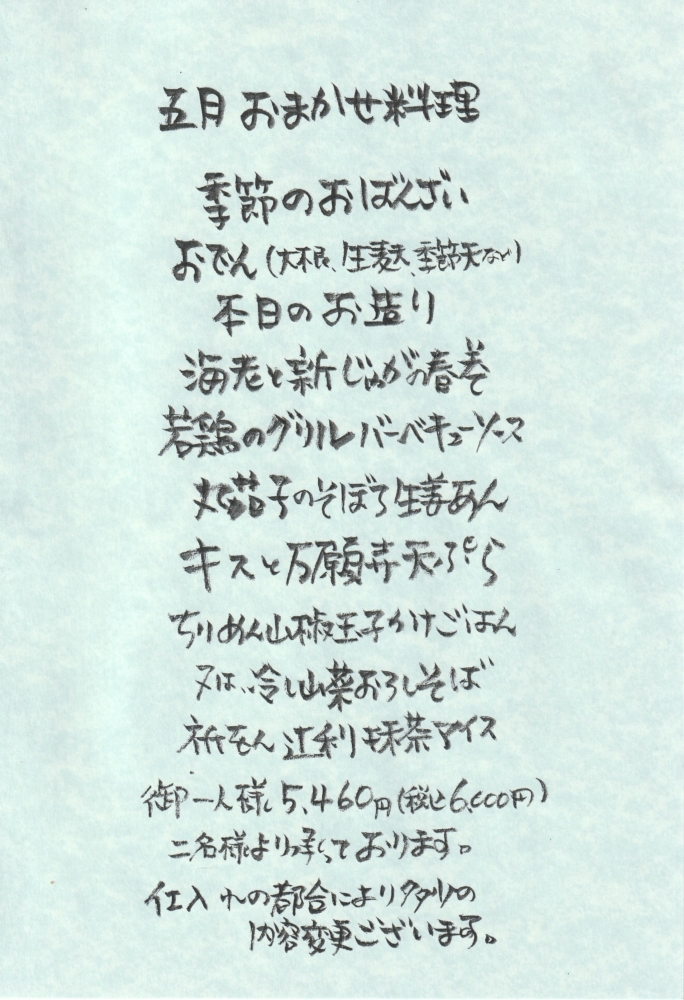 五月 おまかせ料理
季節のおばんざい
おでん(大根、生麩、季節天など)
本日のお造り
海老と新じゃがの春巻
若鶏のグリルバーベキューソース
丸茄子のそぼろ生姜あん
キスと万願寺天ぷら
ちりめん山椒玉子かけごはん
又は、冷し山菜おろしそば
祇をん辻利抹茶アイス
御一人様 5,460円(税込6,000円)
二名様より承っております。
仕入れの都合により多少の
内容変更ございます。